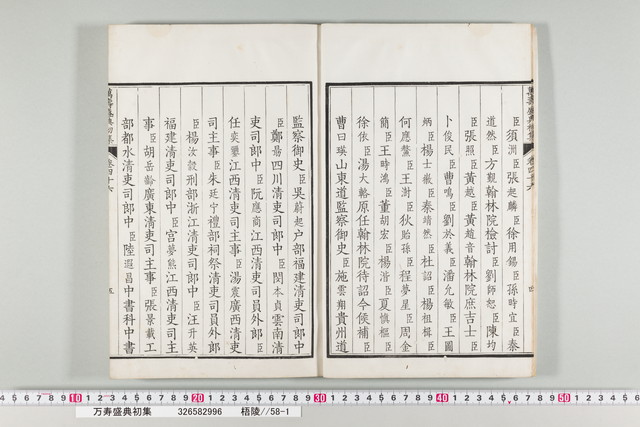 臣須洲臣張起麟臣徐用錫臣孫時宜臣秦
道然臣方覲翰林院檢討臣劉師恕臣陳均
臣張照臣黃越臣黃越音翰林院庶吉士臣
卜俊民臣曹鳴臣劉於義臣潘允敏臣王國
炳臣楊士徽臣秦靖然臣杜詔臣楊祖楫臣
何應鰲臣王澍臣狄貽孫臣程夢星臣周金
簡臣王時鴻臣董胡宏臣楊湝臣夏慎樞臣
徐依臣湯大輅原任翰林院待詔今候補臣
曹曰瑛山東道監察御史臣施雲翔貴州道
萬壽盛典初集
卷四十六
四
監察御史臣吳蔚起户部福建清吏司郎中
臣鄭勗四川清吏司郎中臣閔本貞雲南清
吏司郎中臣阮應商江西清吏司員外郎臣
任奕鑾江西清吏司主事臣湯寰廣西清吏
司主事臣朱廷宁禮部祠祭清吏司員外郎
臣楊汝穀刑部浙江清吏司郎中臣汪升英
福建清吏司郎中臣宮夢熊江西清吏司主
事臣胡岳齡廣東清吏司主事臣張景載工
部都水清吏司郎中臣陸遐昌中書科中書
萬壽盛典初集
卷四十六
五
10 20 30 40 50
万寿盛典初集 326582996 梧陵//58-1